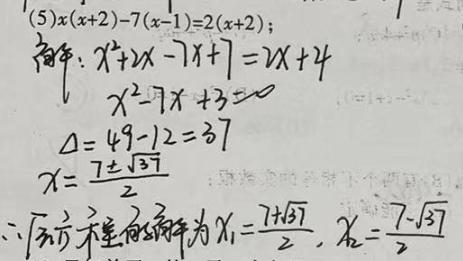 (5)x(x+2)-7(x-1)=2(x+2);
解: x²+2x-7x+7=2x+4
x²-7x+3=0
Δ=49-12=37
x=(7±√37)/2
∴原方程的解为x₁=(7+√37)/2, x₂=(7-√37)/2